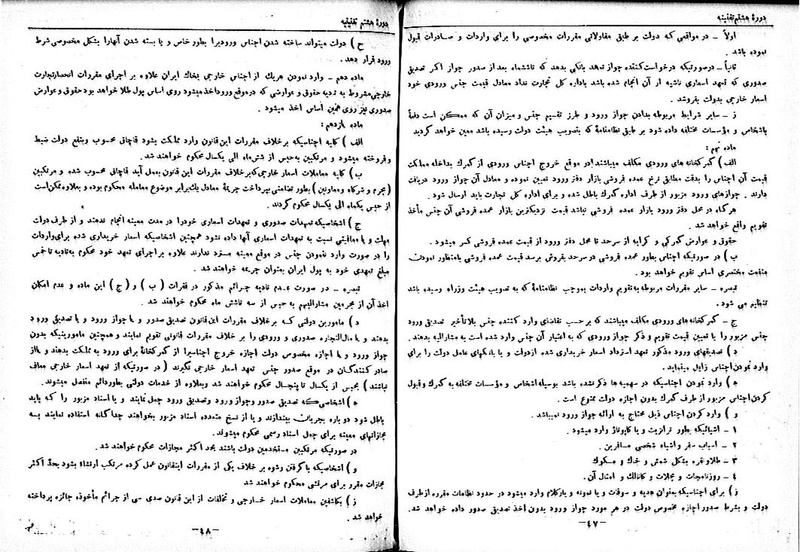 دورهٔ هشتم تقنینیه
اولاً - در مواقعی که دولت بر طبق مقاولاتی مقررات مخصوصی را برای واردات و صادرات قبول
نموده باشد .
ثانیاً - درصورتیکه درخواست کننده جواز تعهد بانکی بدهد که تا ششماه بعد از صدور جواز اگر تصدیق
صدوری که تعهد اسعاری ناشیه از آن انجام شده باشد باداره کل تجارت نداد معادل قیمت جنس ورودی خود
اسعار خارجی بدولت بفروشد .
ز - سایر شرایط مربوطه بدادن جواز ورود و طرز تقسیم جنس و میزان آن که ممکن است دفعةً
باشخاص و مؤسسات مختلفه داده شود بر طبق نظامنامهٔ که بتصویب هیئت دولت رسیده باشد معین خواهد گردید
ماده نهم :
الف ) گمرکخانه های ورودی مکلف میباشند در موقع خروج اجناس ورودی از گمرک بداخله مملکت
قیمت آن اجناس را بدقت مطابق نرخ عمده فروشی بازار دفتر ورود تعیین نموده و معادل آن جواز ورود دریافت
دارند . جوازهای ورود مزبور از طرف اداره گمرک باطل شده و برای اداره کل تجارت باید ارسال شود .
هرگاه در محل دفتر ورود بازار عمده فروشی نباشد قیمت نزدیکترین بازار عمده فروشی آن جنس مأخذ
تقویم واقع خواهد شد .
حقوق و عوارض گمرکی و کرایه از سرحد تا محل دفتر ورود از قیمت عمده فروشی کسر میشود .
ب ) در صورتیکه اجناس بطور عمده فروشی در سرحد بفروش برسد قیمت عمده فروشی با منظور نمودن
منفعت مختصری اساس تقویم خواهد بود .
تبصره - سایر مقررات مربوطه بتقویم واردات بموجب نظامنامهٔ که به تصویب هیئت وزراء رسیده باشد
تنظیم می شود .
ج - گمرکخانه های ورودی مکلف میباشند که بر حسب تقاضای وارد کننده جنس بلا تأخیر تصدیق ورود
جنس مزبور را با تعیین قیمت تقویم و ذکر جواز ورودی که به اعتبار آن جنس وارد شده است به مشارالیه بدهند .
د ) تصدیقهای ورود مذکور تعهد استرداد اسعار خریداری شده از دولت و یا بانکهای عامل دولت را برای
وارد نمودن اجناس زایل مینماید .
ه ) وارد نمودن اجناسیکه در سهمیه ها ذکر نشده باشد بوسیله اشخاص و مؤسسات مختلفه به گمرک و قبول
کردن اجناس مزبور از طرف گمرک بدون اجازه دولت ممنوع است .
و ) وارد کردن اجناس ذیل محتاج به ارائه جواز ورود نمیباشد .
۱ - اشیائیکه بطور ترانزیت و یا کاپوتاژ وارد میشود .
۲ - اسباب سفر و اشیاء شخصی مسافرین .
۳ - طلا و نقره بشکل شمش و خاک و مسکوک
۴ - روزنامجات و مجلات و کاتالگ و امثال آن .
ز ) برای اجناسیکه بعنوان هدیه و سوقات و یا نمونه و یا رکلام وارد میشود در حدود نظامات مقرره از طرف
دولت و بشرط صدور اجازه مخصوص دولت در هر مورد جواز ورود بدون اخذ تصدیق صدور داده خواهد شد .
-۴۷-
دورهٔ هشتم تقنینیه
ح ) دولت میتواند ساخته شدن اجناس ورودیرا بطور خاص و یا بسته شدن آنهارا بشکل مخصوصی شرط
ورود قرار دهد .
ماده دهم - وارد نمودن هریک از اجناس خارجی بخاک ایران علاوه بر اجرای مقررات انحصار تجارت
خارجی مشروط به تدیه حقوق و عوارضی که در موقع ورود اخذ میشود روی اساس پول طلا خواهد بود حقوق و عوارض
صدوری نیز روی همین اساس اخذ میشود .
ماده یازدهم :
الف ) کلیه اجناسیکه بر خلاف مقررات این قانون وارد مملکت بشود قاچاق محسوب و بنفع دولت ضبط
و فروخته میشود و مرتکبین بحبس از شش ماه الی یکسال محکوم خواهند شد .
ب ) کلیه معاملات اسعار خارجی که بر خلاف مقررات این قانون بعمل آید قاچاق محسوب شده و مرتکبین
( مجرم و شرکاء و معاونین ) بطور تضامنی بپرداخت جریمهٔ معادل یک برابر موضوع معامله محکوم بوده و بعلاوه ممکن است
از حبس یکماه الی یکسال محکوم گردند .
ج ) اشخاصیکه تعهدات صدوری و تعهدات اسعاری خود را در مدت معینه انجام ندهند و از طرف دولت
مهلت و یا معافیتی نسبت به تعهدات اسعاری آنها داده نشود همچنین اشخاصیکه اسعار خریداری شده برای واردات
را در صورت وارد ننمودن جنس در موقع معینه مسترد ندارند علاوه بر اجرای تعهد خود محکوم به تادیه تا خمس
مبلغ تعهدی خود به پول ایران بعنوان جریمه خواهند شد .
تبصره - در صورت عدم تادیه جرائم مذکور در فقرات ( ب ) و ( ج ) این ماده و عدم امکان
اخذ آن از مجرمین مشارالیهم به حبس از سه تا شش ماه محکوم خواهند شد .
د ) مامورین دولتی که بر خلاف مقررات این قانون تصدیق صدور و یا جواز ورود و یا تصدیق ورود
بدهند و یا مال التجاره صدوری و ورودی را بر خلاف مقررات قانونی تقویم نمایند و همچنین مامورینیکه بدون
جواز ورود و یا اجازه مخصوص دولت اجازه خروج اجناسیرا از گمرکخانهٔ برای ورود به مملکت بدهند و یا از
صادر کنندگان در موقع صدور جنس تعهد اسعار خارجی نگیرند ( در صورتیکه از تعهد اسعار خارجی معاف
نباشند ) بحبس از یکسال تا پنجسال محکوم خواهند شد و بعلاوه از خدمات دولتی بطور دائم منفصل میشوند .
ه ) اشخاصی که تصدیق صدور و جواز ورود و تصدیق ورود جعل نمایند و یا اسناد مزبور را که باید
باطل شود دو باره بجریان بیندازند و یا از نسخ متعدده اسناد مزبور بخواهند جداگانه استفاده نمایند به
مجازاتهای معینه برای جعل اسناد رسمی محکوم میشوند .
در صورتیکه مرتکبین مستخدمین دولت باشند بحد اکثر مجازات محکوم خواهند شد .
و ) اشخاصیکه با گرفتن رشوه بر خلاف یکی از مقررات این قانون عمل کرده مرتکب ارتشاء بشود بحد اکثر
مجازات مقرر برای مرتشی محکوم خواهند شد
ز ) بکاشفین معاملات اسعار خارجی و تخلفات از این قانون صدی سی از جرائم مأخوذه جائزه پرداخته
خواهد شد .
-۴۸-